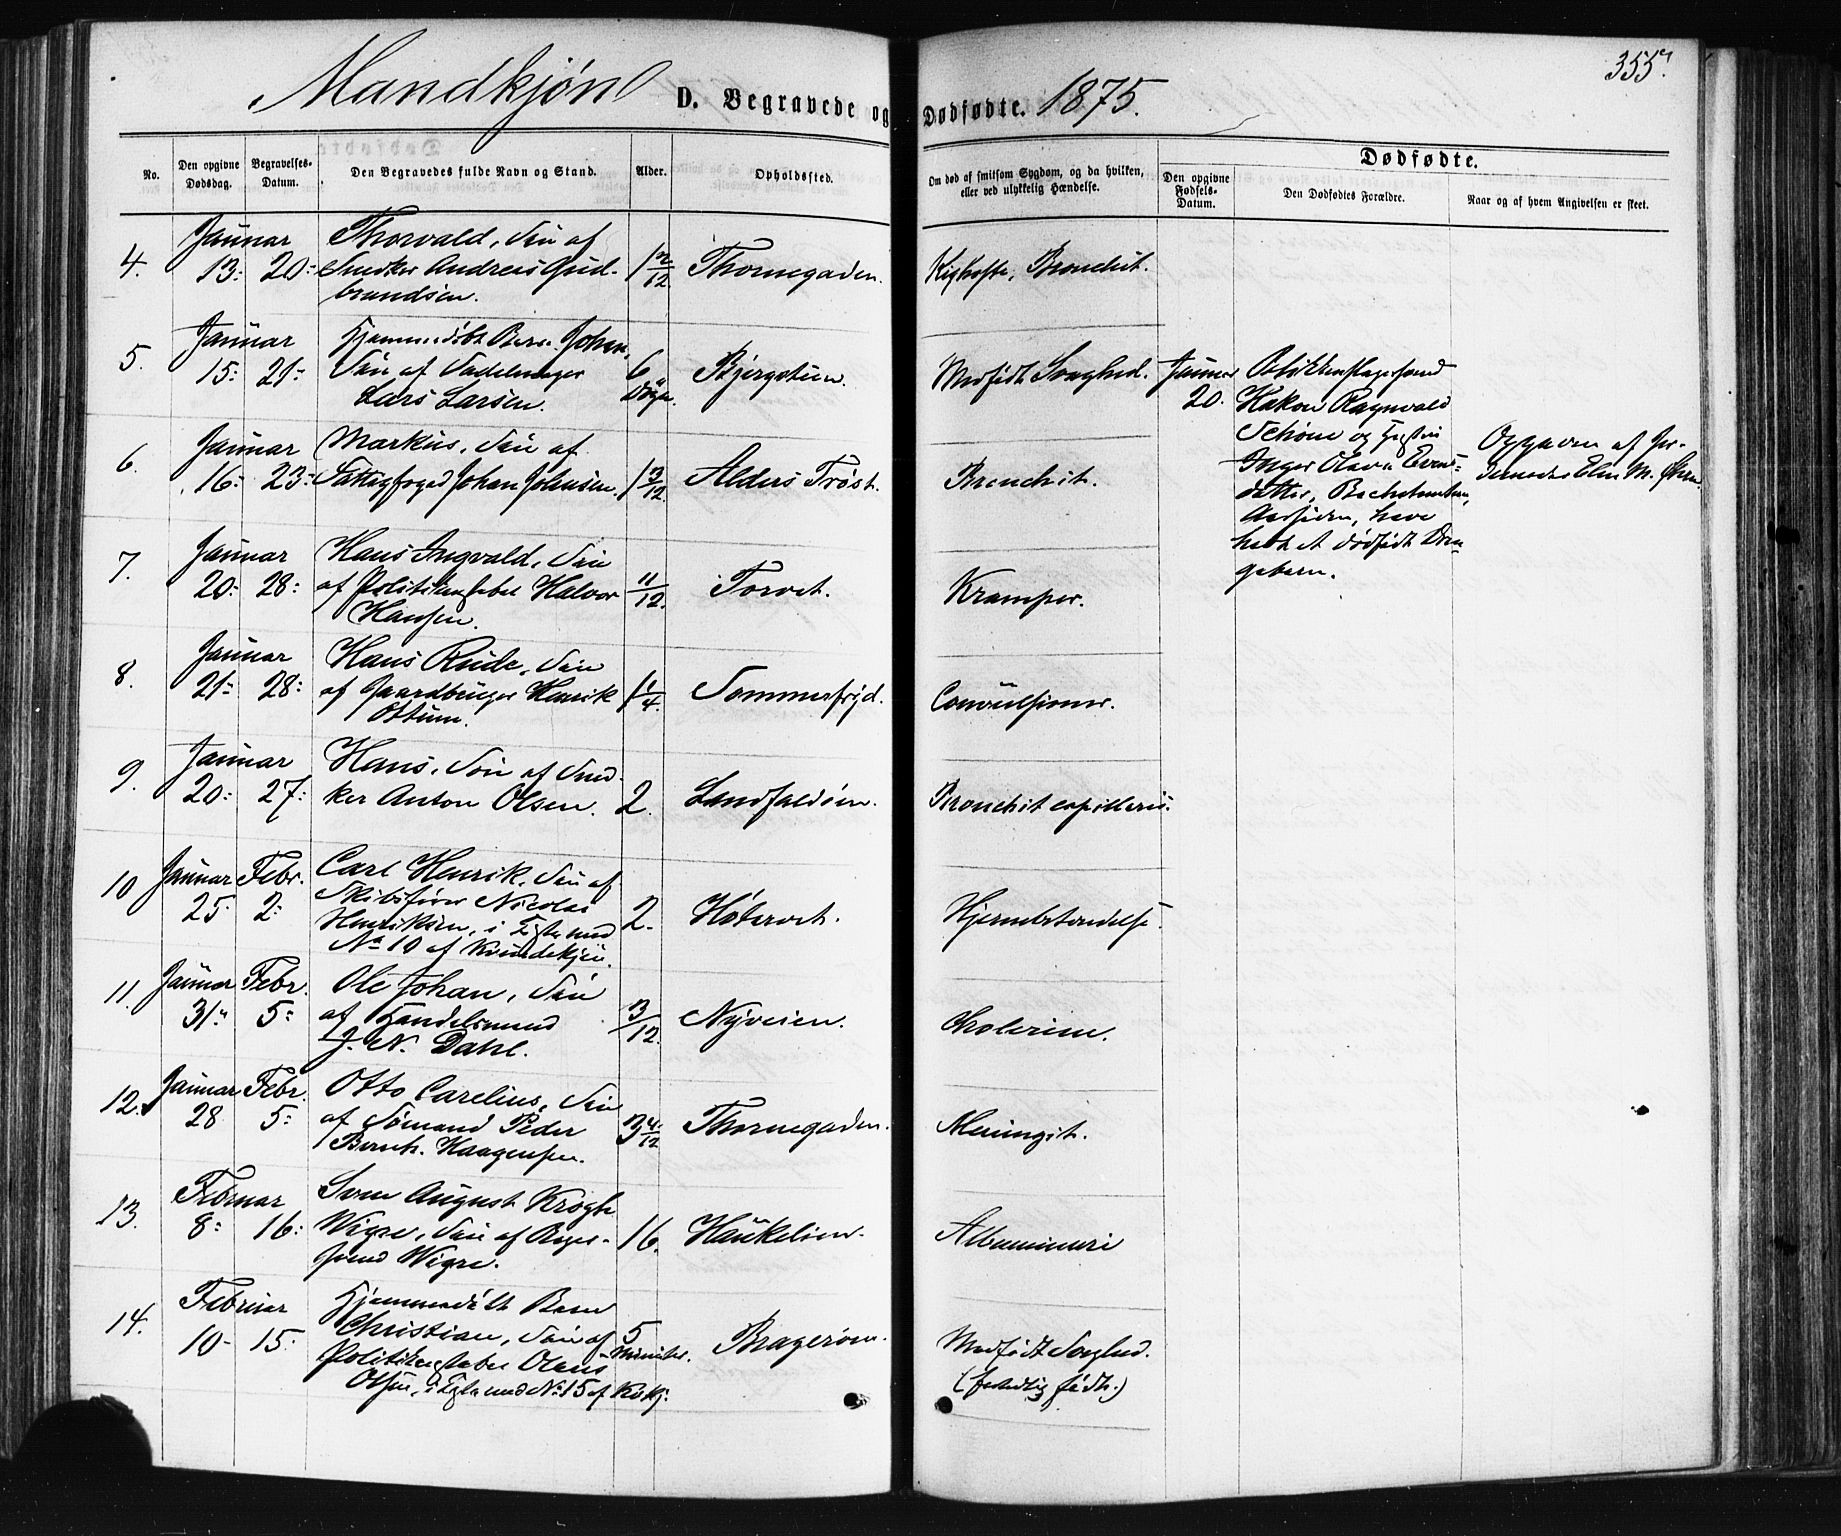 355.
Mandkjøn D. Begravede og Dødfødte. 1875.
No.
Den opgivne Dødsdag.
Begravelses-Datum.
Den Begravedes fulde Navn og Stand.
Alder.
Opholdssted.
Om død af smitsom Sygdom, og da hvilken, eller ved ulykkelig Hændelse.
Dødfødte.
Den opgivne Fødsels-Datum.
Den Dødfødtes Forældre.
Naar og af hvem Angivelsen er skeet.
4. Januar 13: 20: Thorvald, Søn af
Snedker Andreas Gud-
brandsen. 1 2/12 Thornegaden. Kighoste, Bronchit.
5. Januar 15: 21: Hjemmedøbt Barn Johan,
Søn af Sadelmager
Lars Larsen. 6 Døgn. Bjergstien. Medfødt Svaghed.
Januar 20. Politibetjent
Hakon Ragnvald
Schøne og Hustru
Inger Olava Evens-
datter,
have
havt et dødfødt Dren-
gebarn.
Opgaven af Jor-
demoder Elen M.
6. Januar 16: 23: Markus, Søn af
Fattigfoged Johan Johnsen. 1 3/12 Alders Trøst. Bronchit.
7. Januar 20: 28: Hans Ingvald, Søn
af Politikonstabel Halvor
Hansen. 11/12 Torvet. Kramper.
8. Januar 21: 28: Hans Rude, Søn
af Gaardbruger Henrik
Ottum. 1 1/4 Sommerfryd. Convulsioner.
9. Januar 20: 27: Hans, Søn af Sned-
ker Anton Olsen. 2. Landfaldøen. Bronchit capillaris.
10 Januar 25. Febr. 2: Carl Henrik, Søn af
Skibsfører Nicolai
Henriksen, i Kiste med
No 10 af Kvindekjøn. 2. Høtorvet. Hjernebetændelse.
11. Januar 31. Febr. 5: Ole Johan, Søn
af Handelsmand
J. N. Dahl. 3/12 Nyveien. Cholerine.
12. Januar 28 Febr. 5: Otto Carelius, Søn
af Sømand Peder
Bernh. Haagensen. 3 4/12 Thornegaden. Meningit.
13. Februar 8: 16: Sven August Krogh
Wigre, Søn af Boges-
svend Wigre. 16. Haukelien. Albuminuri
14. Februar 10- 15. Hjemmedøbt Barn
Christian, Søn af
Politikonstabel Olaus
Olsen, i Kiste med No 15 af Kv. Kj. 5 Minuter. Bragerøen. Medfødt Svaghed.
(for tidlig født.)